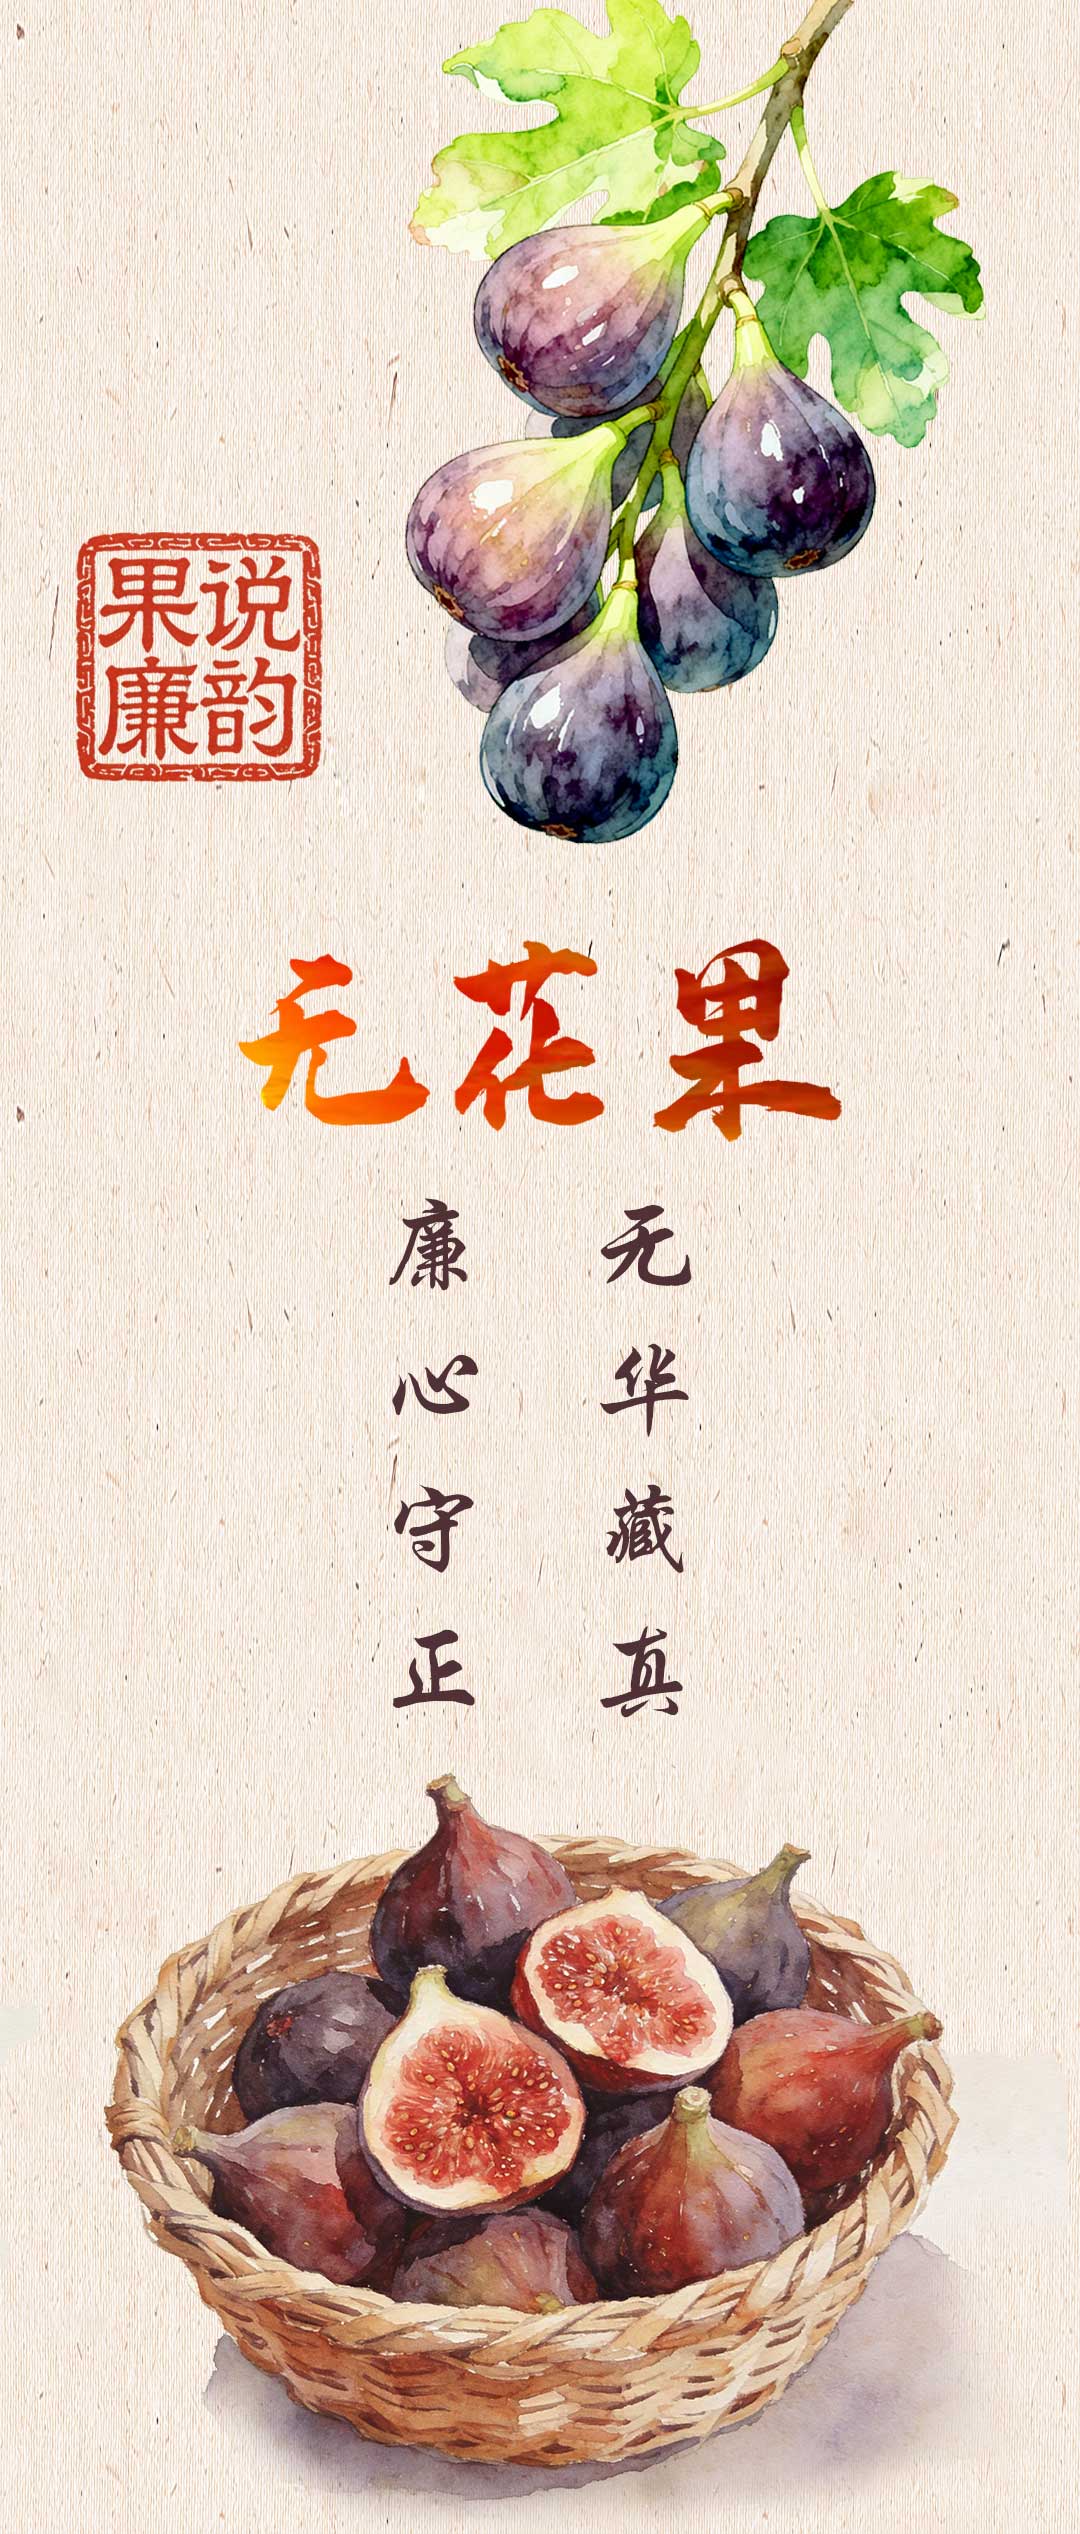 果说
廉韵
无花果
无华藏真
廉心守正